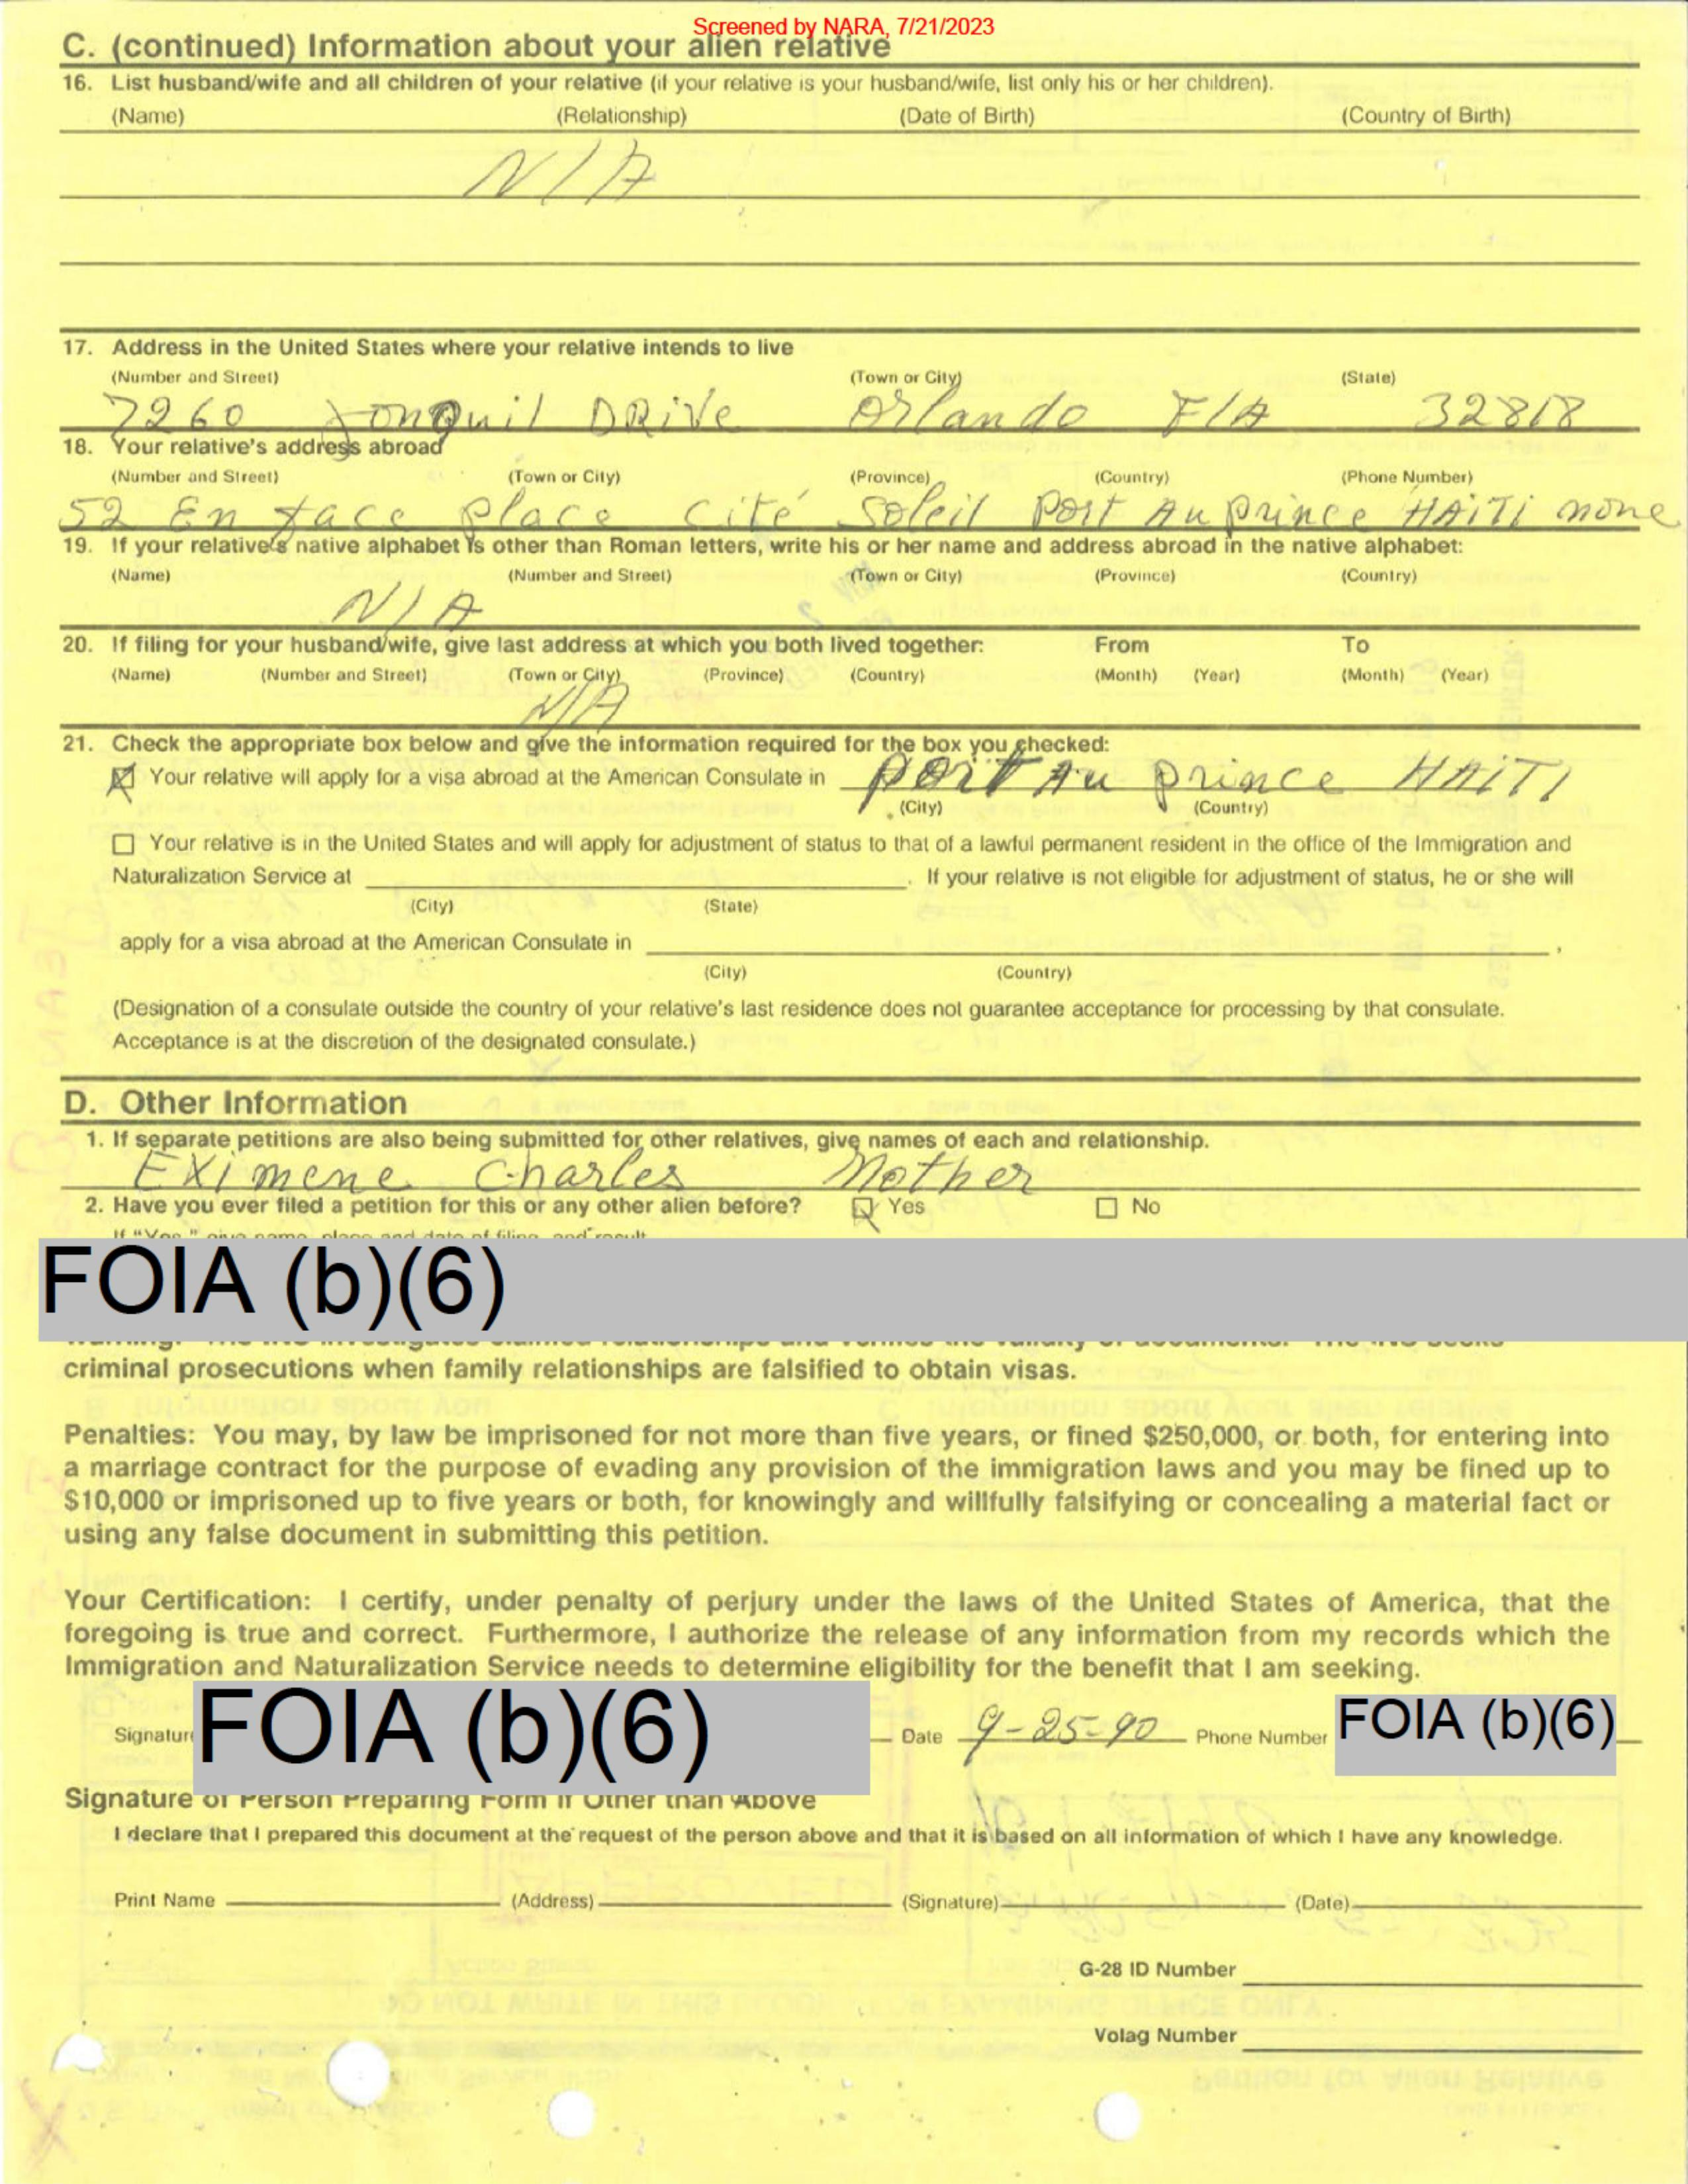 Screened by NARA, 7/21/2023
C. (continued) Information about your alien relative
16. List husband/wife and all children of your relative (if your relative is your husband/wife, list only his or her children).
(Name) (Relationship) (Date of Birth) (Country of Birth)
N/A
17. Address in the United States where your relative intends to live
(Number and Street) (Town or City) (State)
7260 Jonquil DRive Orlando FlA 32818
18. Your relative's address abroad
(Number and Street) (Town or City) (Province) (Country) (Phone Number)
52 En face place cité Soleil Port Au prince HAiTi none
19. If your relative's native alphabet is other than Roman letters, write his or her name and address abroad in the native alphabet:
(Name) (Number and Street) (Town or City) (Province) (Country)
N/A
20. If filing for your husband/wife, give last address at which you both lived together: From To
(Name) (Number and Street) (Town or City) (Province) (Country) (Month) (Year) (Month) (Year)
N/A
21. Check the appropriate box below and give the information required for the box you checked:
Your relative will apply for a visa abroad at the American Consulate in port Au prince HAITI
(City) (Country)
Your relative is in the United States and will apply for adjustment of status to that of a lawful permanent resident in the office of the Immigration and
Naturalization Service at . If your relative is not eligible for adjustment of status, he or she will
(City) (State)
apply for a visa abroad at the American Consulate in .
(City) (Country)
(Designation of a consulate outside the country of your relative's last residence does not guarantee acceptance for processing by that consulate.
Acceptance is at the discretion of the designated consulate.)
D. Other Information
1. If separate petitions are also being submitted for other relatives, give names of each and relationship.
EXimene Charles Mother
2. Have you ever filed a petition for this or any other alien before? Yes No
If "Yes," give name, place and date of filing, and result
FOIA (b)(6)
criminal prosecutions when family relationships are falsified to obtain visas.
Penalties: You may, by law be imprisoned for not more than five years, or fined $250,000, or both, for entering into
a marriage contract for the purpose of evading any provision of the immigration laws and you may be fined up to
$10,000 or imprisoned up to five years or both, for knowingly and willfully falsifying or concealing a material fact or
using any false document in submitting this petition.
Your Certification: I certify, under penalty of perjury under the laws of the United States of America, that the
foregoing is true and correct. Furthermore, I authorize the release of any information from my records which the
Immigration and Naturalization Service needs to determine eligibility for the benefit that I am seeking.
Signature FOIA (b)(6) Date 9-25-90 Phone Number FOIA (b)(6)
Signature of Person Preparing Form if Other than Above
I declare that I prepared this document at the request of the person above and that it is based on all information of which I have any knowledge.
Print Name (Address) (Signature) (Date)
G-28 ID Number
Volag Number